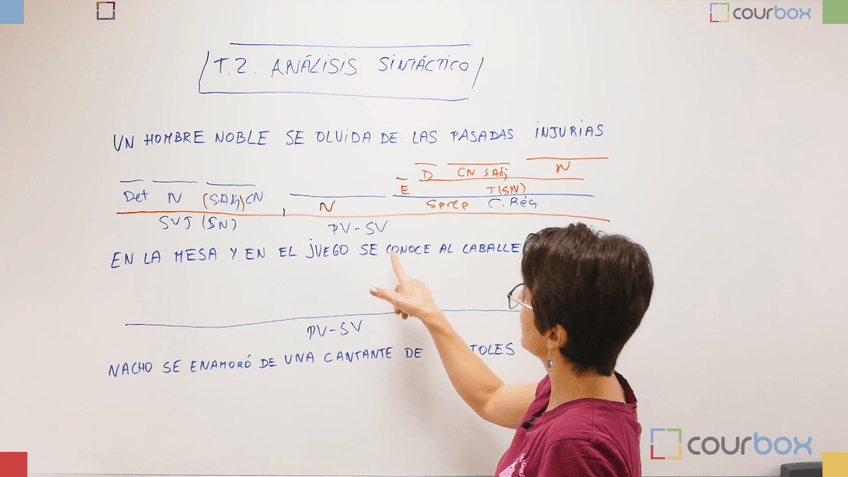 courbox
T.2. ANÁLISIS SINTÁCTICO
UN HOMBRE NOBLE SE OLVIDA DE LAS PASADAS INJURIAS
D CN SAdj N
E T(SN)
Det N (SAdj)CN N Sprep C.Rég
SUJ (SN) PV-SV
EN LA MESA Y EN EL JUEGO SE CONOCE AL
PV-SV
NACHO SE ENAMORÓ DE UNA CANTANTE DE
courbox